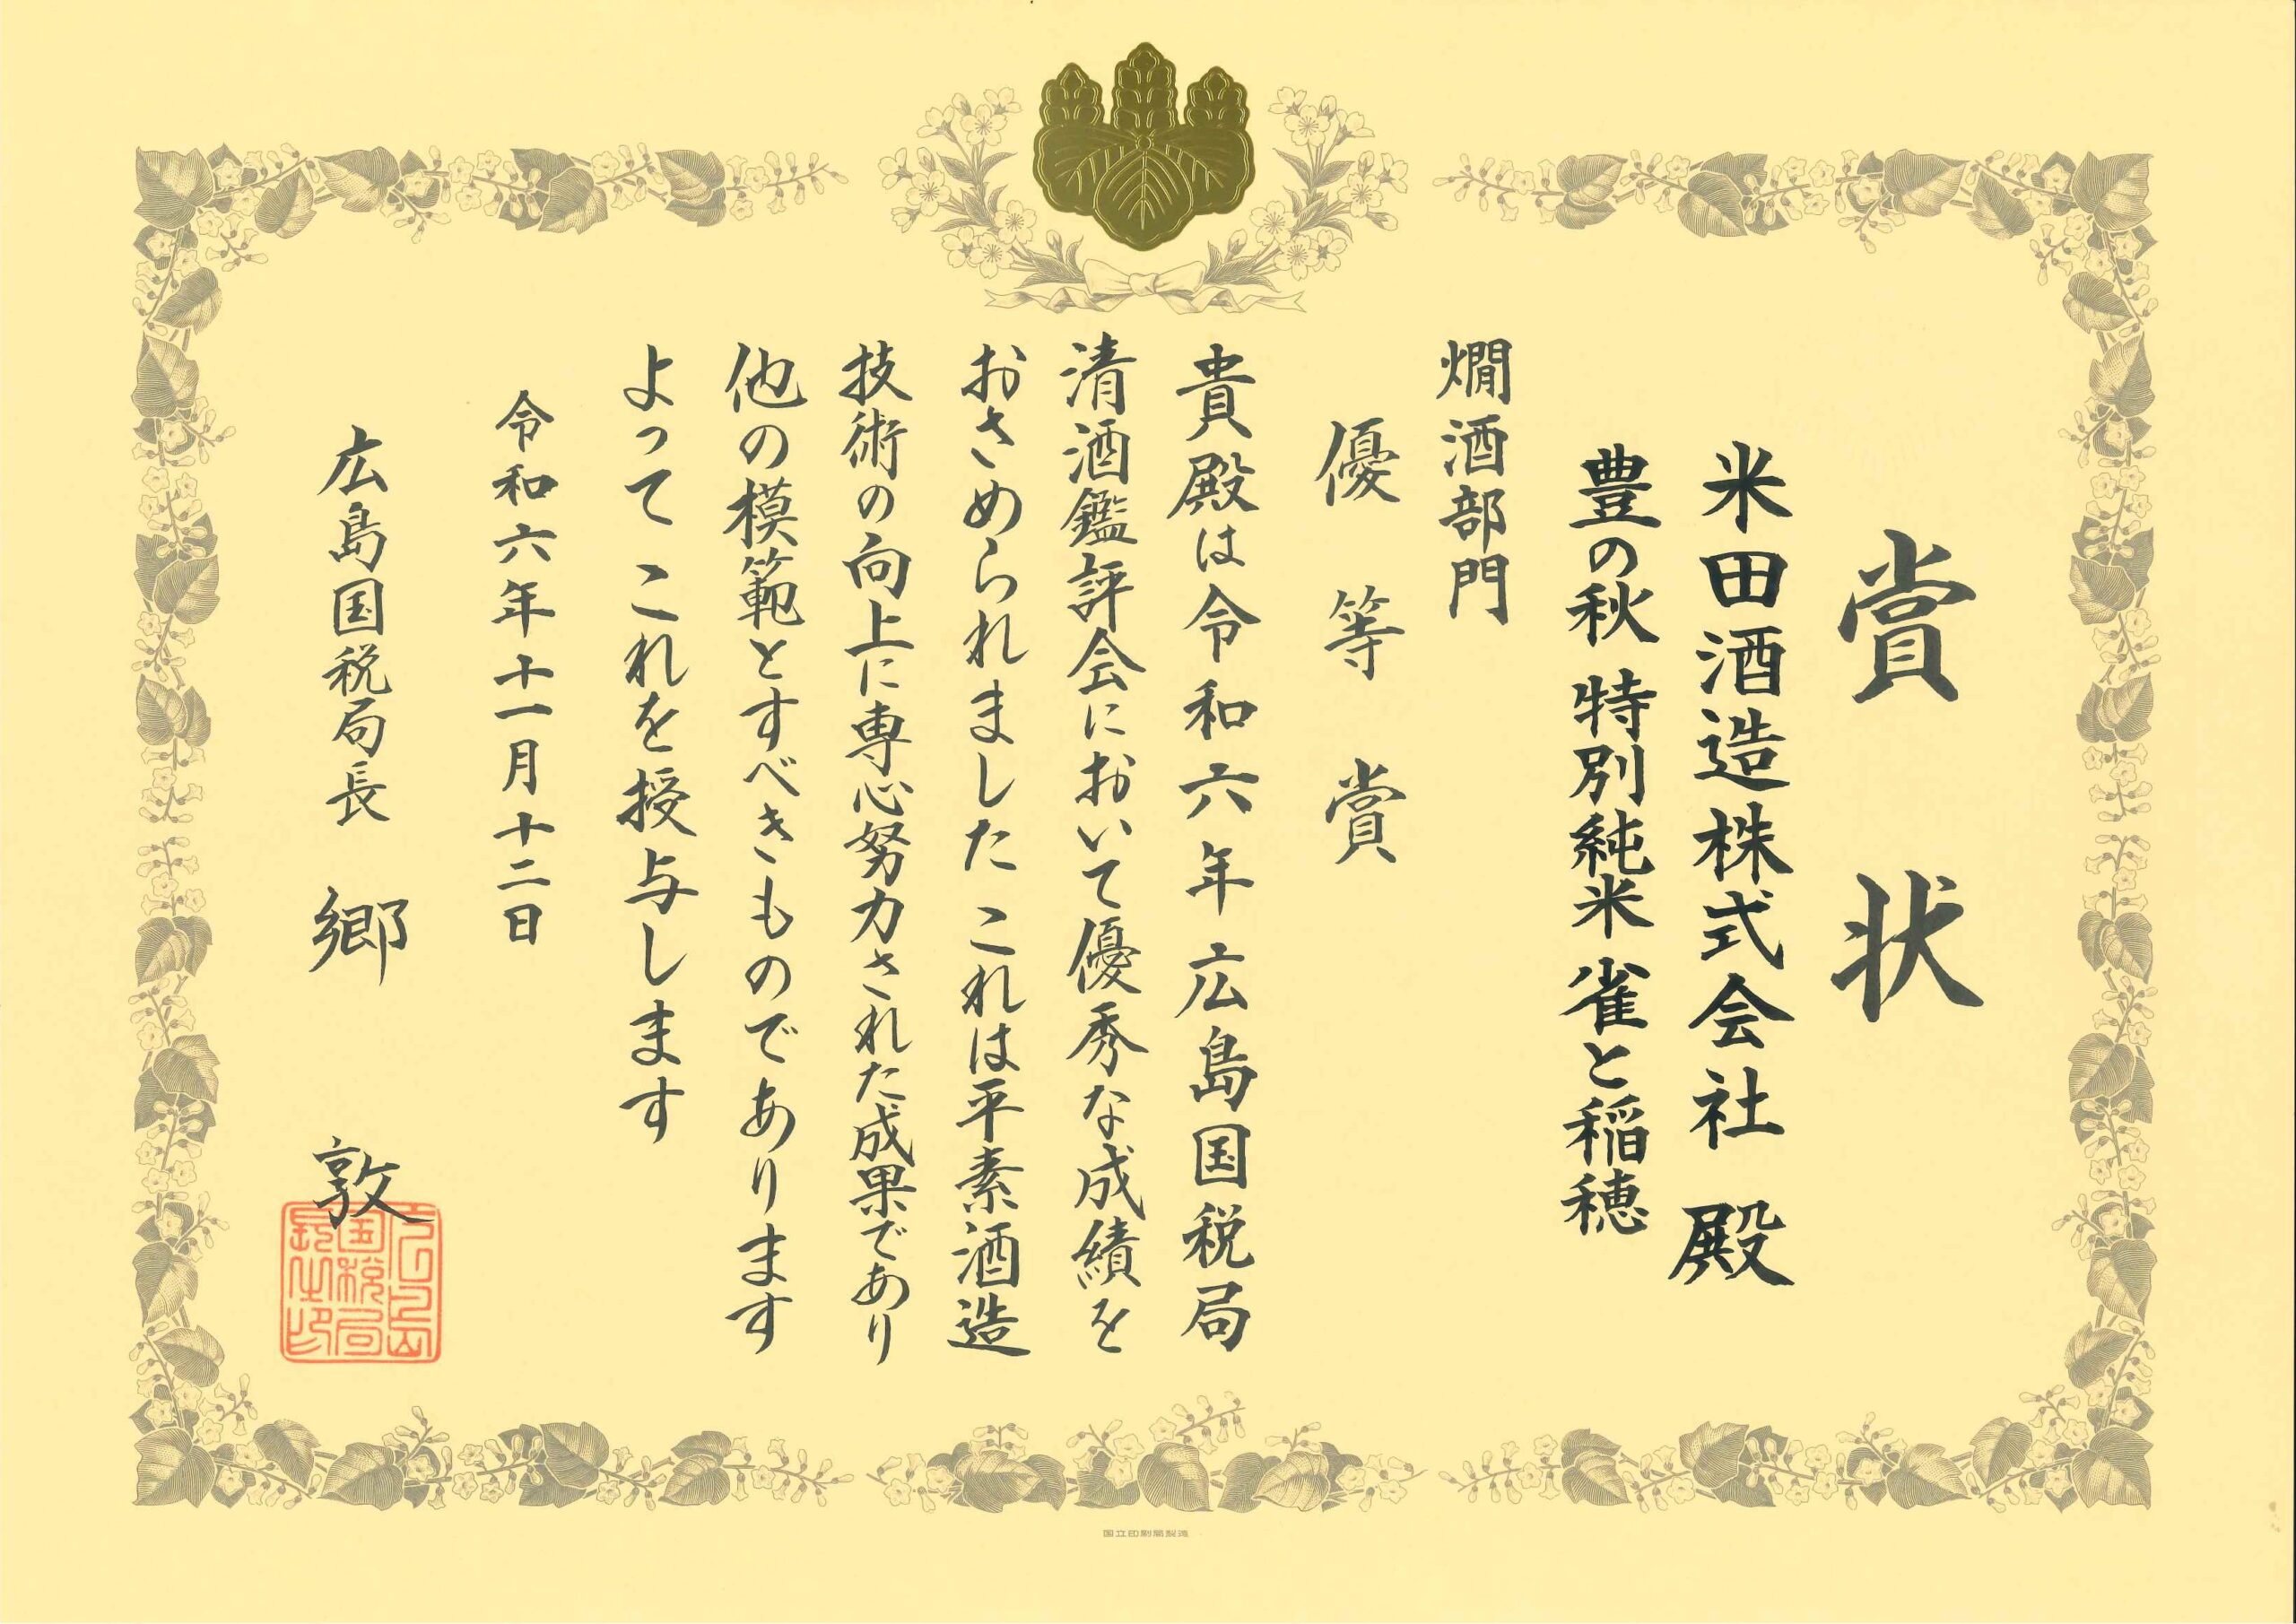 賞状
米田酒造株式会社 殿
豊の秋 特別純米 雀と稲穂
燗酒部門
優等賞
貴殿は令和六年広島国税局
清酒鑑評会において優秀な成績を
おさめられました これは平素酒造
技術の向上に専心努力された成果であり
他の模範とすべきものであります
よって これを授与します
令和六年十一月十二日
広島国税局長 郷 敦
広島国税局長之印
国立印刷局製造